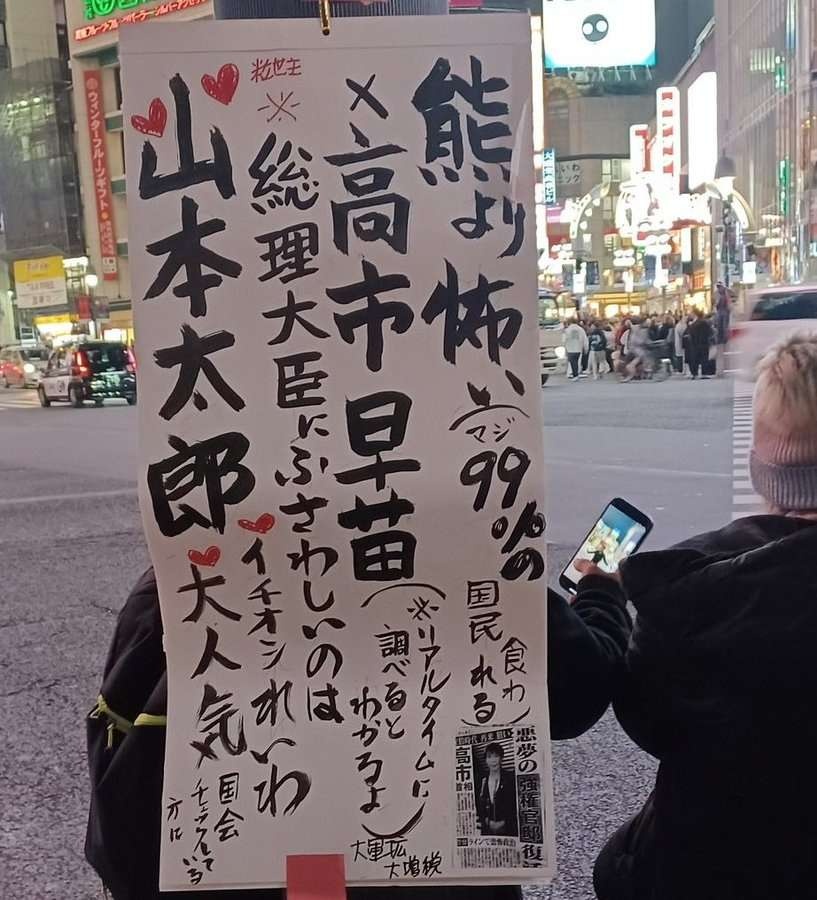 熊より怖い
(マジ)
99%の
国民
食わ
れる
×高市早苗
(※リアルタイムに
調べると
わかるよ)
大軍拡
大増税
※
総理大臣にふさわしいのは
イチオシれいわ
山本太郎
大人気
国会
チェックして
いる
方に
悪夢の強権官邸復活
高市
首相
ウィンターフルーツギフト